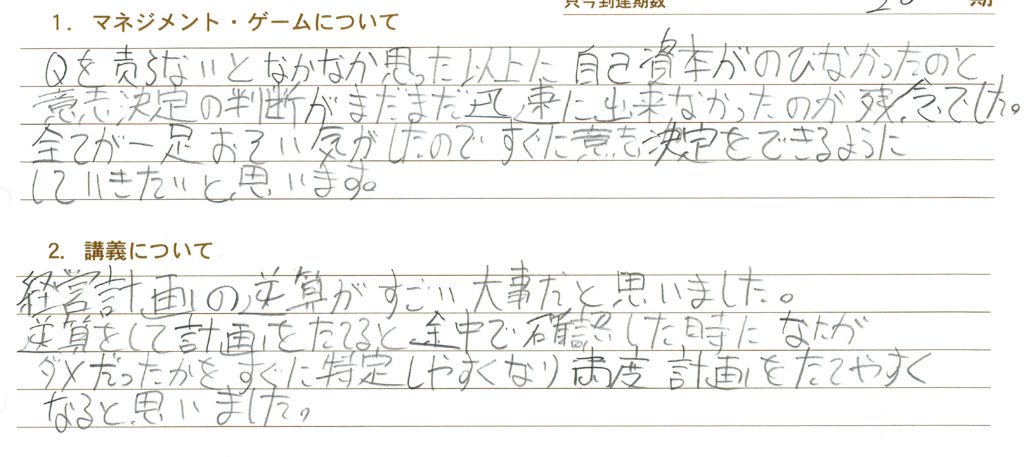 只今到達期数 期
1. マネジメント・ゲームについて
Qを売らないとなかなか思った以上に自己資本がのびなかったのと
意志決定の判断がまだまだ迅速に出来なかったのが残念でした。
全てが一足おそい気がしたのですぐに意志決定をできるように
していきたいと思います。
2. 講義について
経営計画の逆算がすごい大事だと思いました。
逆算をして計画をたてると途中で確認した時になにが
ダメだったかをすぐに特定しやすくなり再度計画をたてやすく
なると思いました。